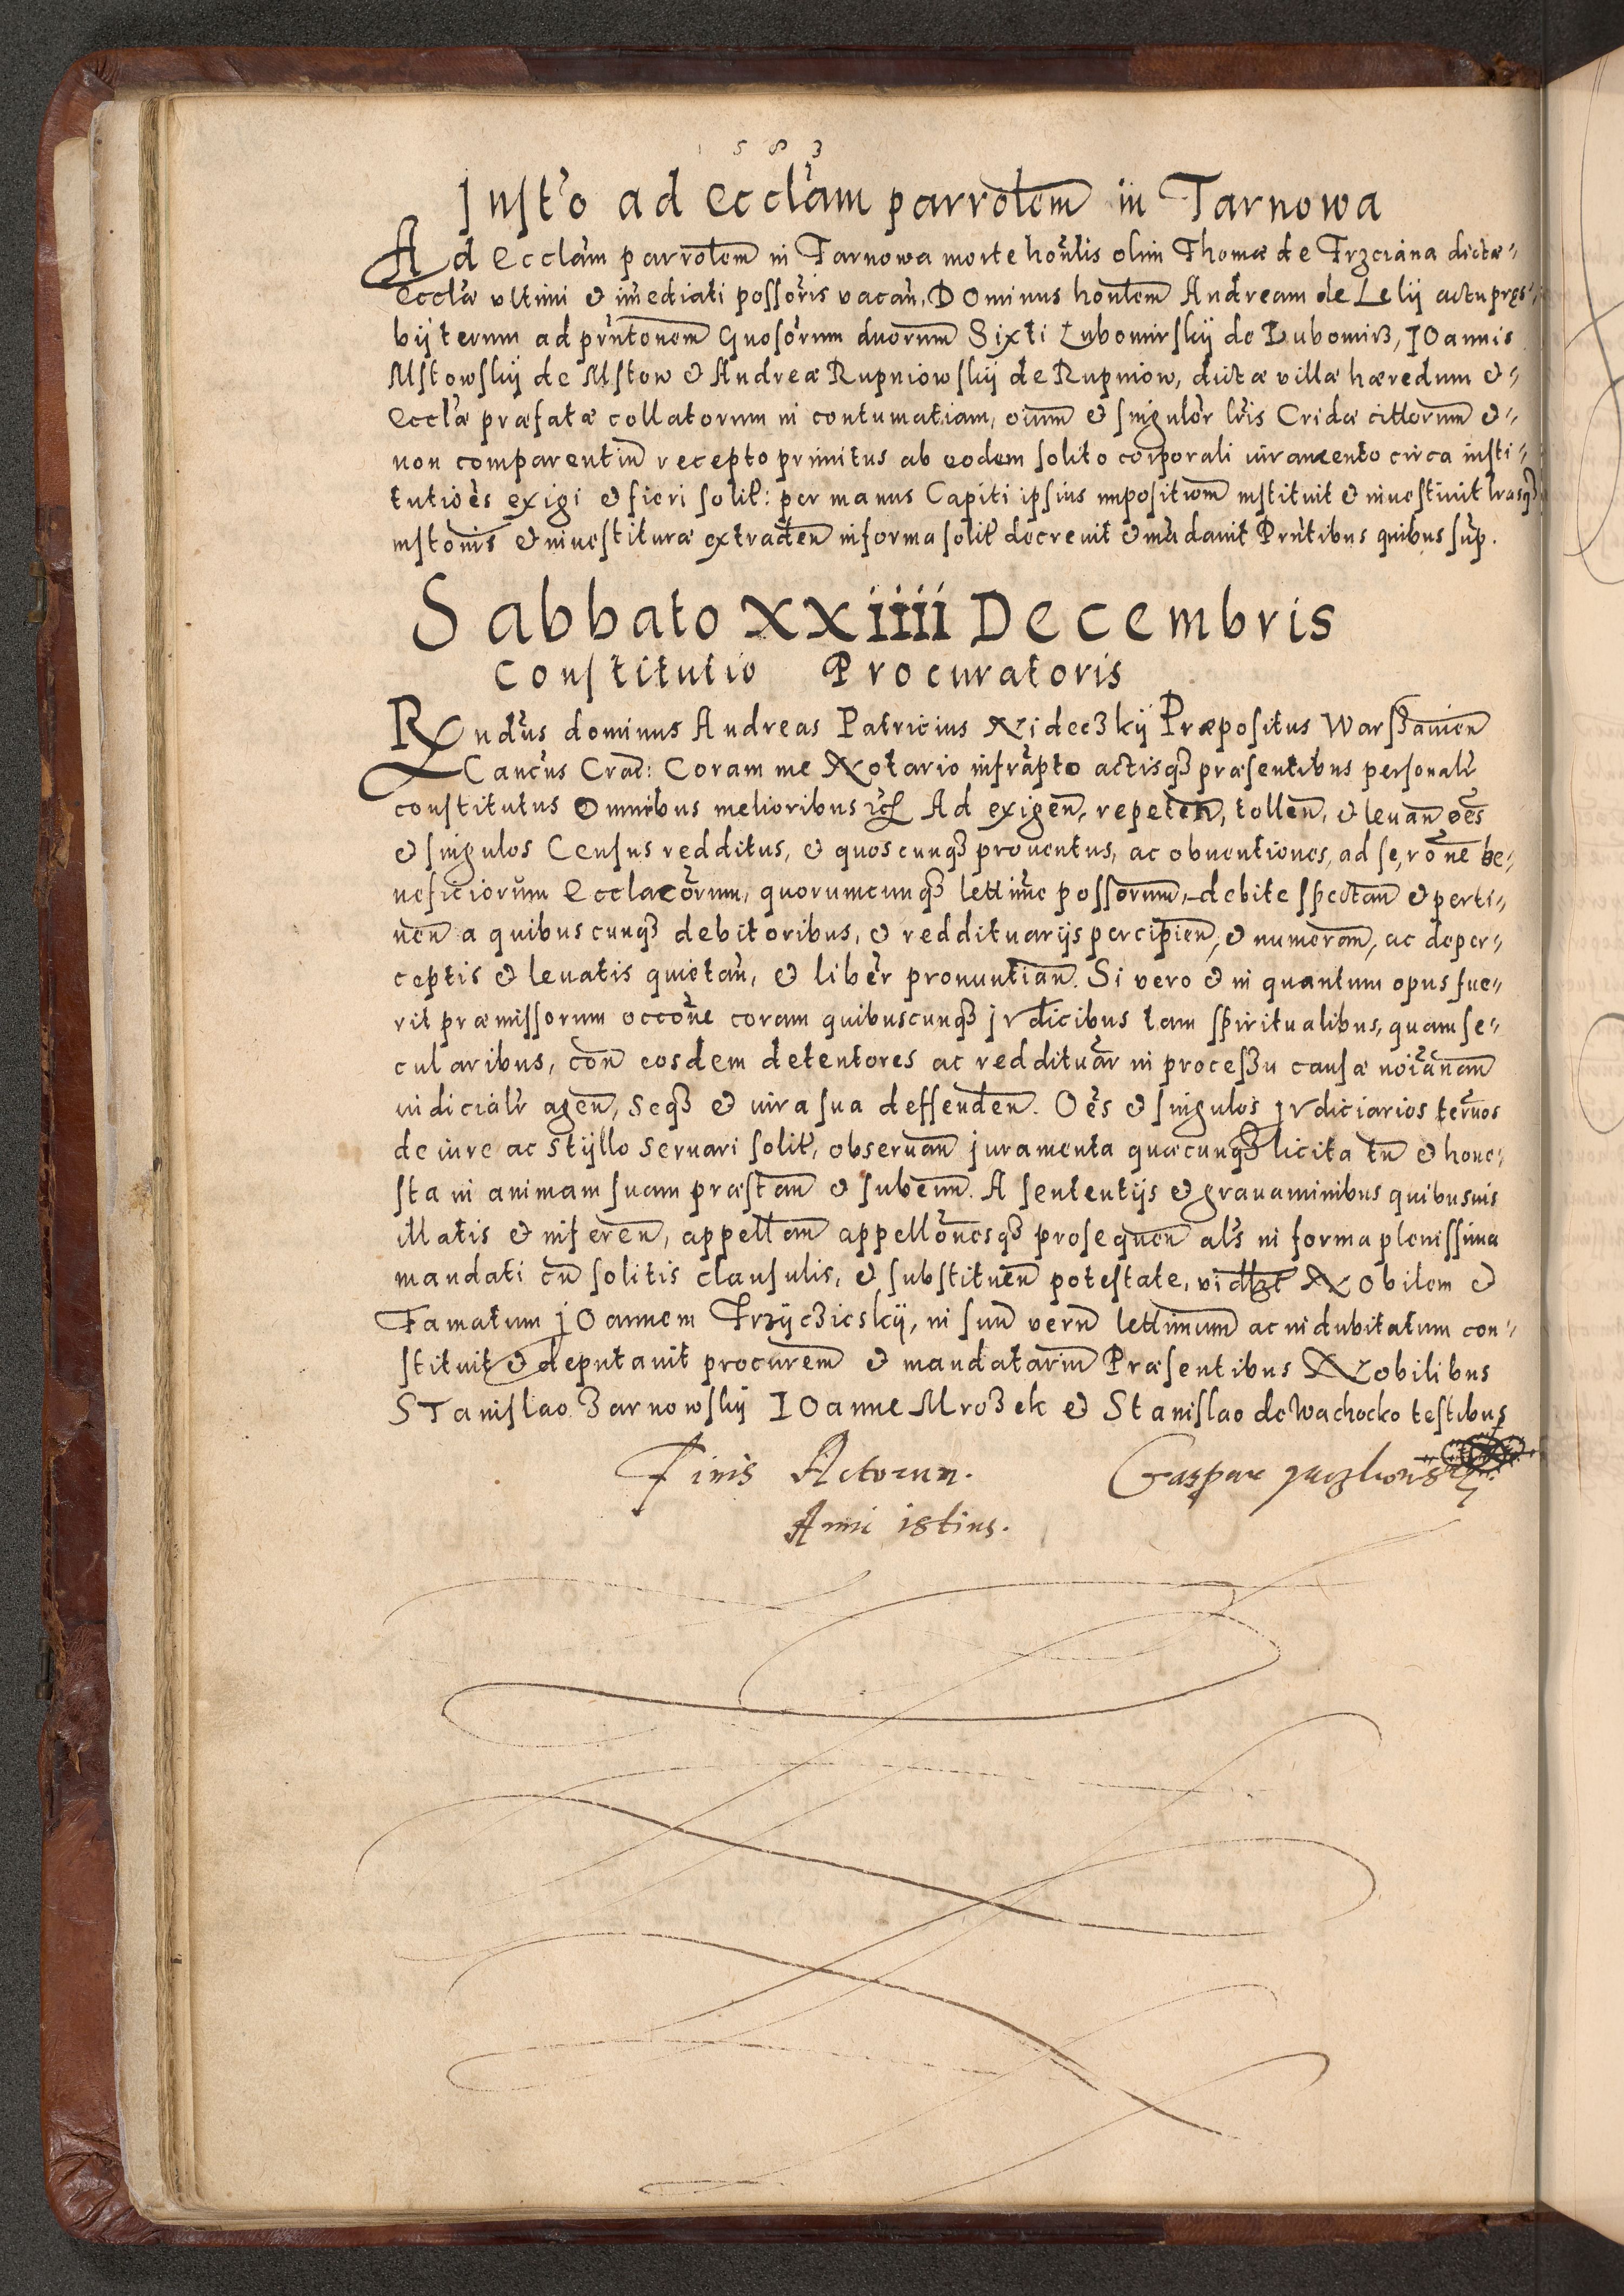 583
Inst'o ad ecclam parrolem in Tarnowa
Ad Ecclam parrolem in Tarnowa morte honlis olim Thomæ de Trzciana dictæ
Ecclæ vltimi et imediati possoris vacan, Dominus honlem Andream de Lelij actu pręs-
bijterum ad pntonem Gnosorum duorum Sixti Lubomirskij de Lubomirz, IOannis
Mstowskij de Mstow et Andreæ Rupniowskij de Rupniow, dictæ villæ hæredum et
Ecclæ præfatæ collatorum in contumatiam, oium et singulor lris Cridæ cittorum et
non comparentiu recepto primitus ab eodem solito corporali iuramento circa insti-
tutioes exigi et fieri solit: per manus Capiti ipsius impositiom instituit et inuestiuit lrasq3
instonis et inuestituræ extraden in forma solit decreuit et madauit Pntibus quibus sup.
Sabbato XXiiii Decembris
Constitutio Procuratoris
Rndus dominus Andreas Patricius Nidec3kij Præpositus Warsßauien
Cancus Crac: Coram me Notario infrapto actisq3 præsentibus personalr
constitutus Omnibus melioribus Ad exigen, repeten, tollen, et leuan oes
et singulos Census redditus, et quoscunq3 prouentus, ac obuentiones, ad se, rone be-
neficiorum Ecclacorum, quorumcunq3 lettime possorum, debite spectan et perti-
nen a quibuscunq3 debitoribus, et reddituarijs percipien, et numeran, ac deper-
ceptis et leuatis quietan, et liber pronuntian. Si vero et in quantum opus fue-
rit præmissorum occone coram quibuscunq3 jvdicibus tam spiritualibus, quam se-
cularibus, con eosdem detentores ac reddituar in processu causæ noianam
iudicialr agen, seq3 et iura sua deffenden. Oes et singulos jvdiciarios ternos
de iure ac stijllo seruari solit, obseruan juramenta quæcunq3 licita tn et hone-
sta in animam suam præstan et subeun. A sententijs et grauaminibus quibusuis
illatis et inferen, appellam appellonesq3 prosequen als in forma plenissima
mandati cu solitis clausulis, et substituen potestate, vidlzt Nobilem et
Famatum jOannem Trzijc3icskij, in suu veru lettimum ac indubitatum con-
stituit et deputauit procurem et mandatariu Præsentibus Nobilibus
STanislao 3arnowskij IOanne Mro3ek et Stanislao de Wachocko testibus
Finis Actorum.
Anni istius.